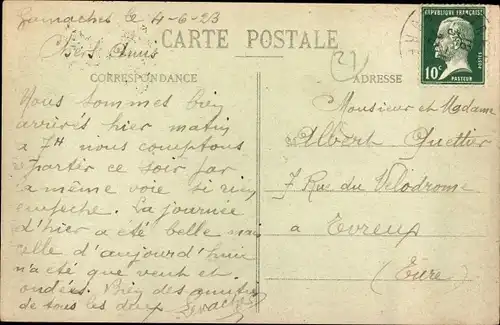 Gamaches le 4-6-23
Chers Amis
CARTE POSTALE
CORRESPONDANCE
ADRESSE
21
RÉPUBLIQUE FRANÇAISE
10c
POSTES
PASTEUR
Nous sommes bien
arrivés hier matin
a 7H nous comptons
repartir ce soir par
la même voie si rien
empeche. La journée
d'hier a été belle mais
celle d'aujourd'hui
n'a été que vent et
ondées. Bien des amitiés
de tous les deux
Monsieur et Madame
Albert Quettier
7 Rue du Vélodrome
a Evreux
(Eure)